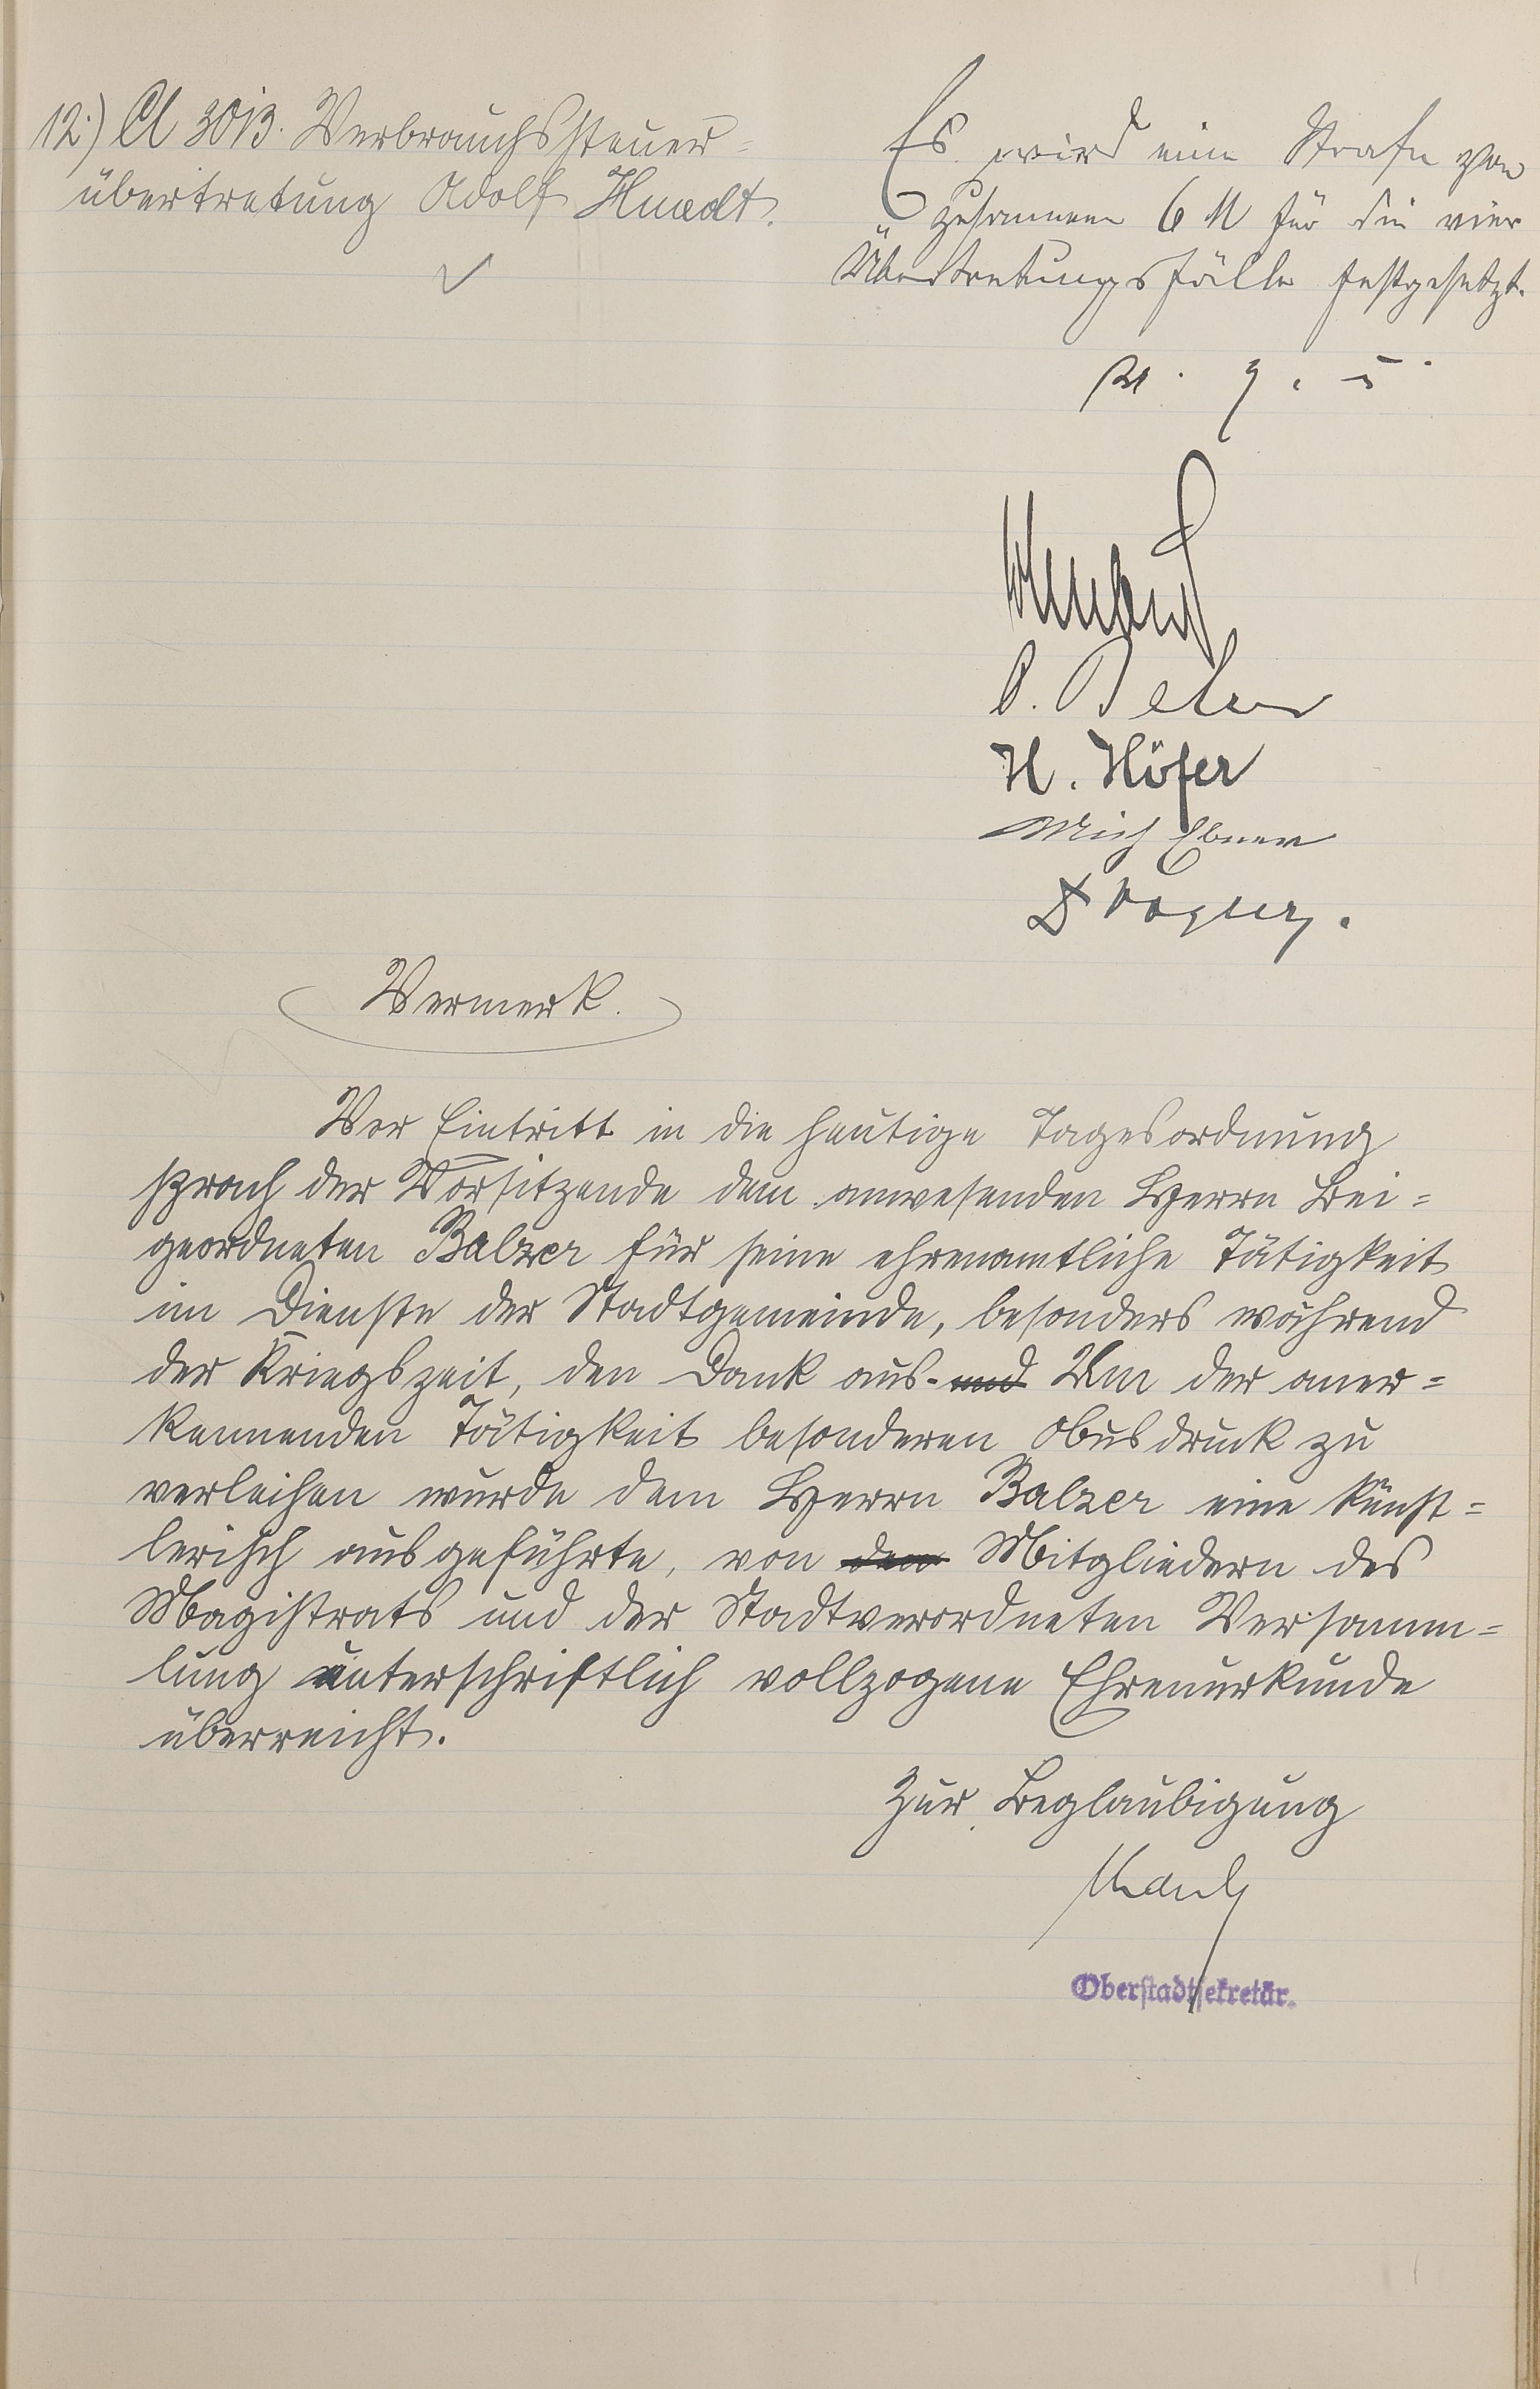 12.) A 3013. Verbrauchssteuer-
übertretung Adolf
Es wird eine Strafe von
zusammen 6 M für die vier
Übertretungsfälle festgesetzt.
v. g. u.
H. Höfer
Mich Ebner
Dr Wagner.
Vermerk.
Vor Eintritt in die heutige Tagesordnung
sprach der Vorsitzende dem anwesenden Herrn Bei=
geordneten Balzer für seine ehrenamtliche Tätigkeit
im Dienste der Stadtgemeinde, besonders während
der Kriegszeit, den Dank aus. und Um der aner=
kennenden Tätigkeit besonderen Ausdruck zu
verleihen wurde dem Herrn Balzer eine künst=
lerisch ausgeführte, von den Mitgliedern des
Magistrats und der Stadtverordneten Versamm=
lung unterschriftlich vollzogene Ehrenurkunde
überreicht.
Zur Beglaubigung
Oberstadtsekretär.